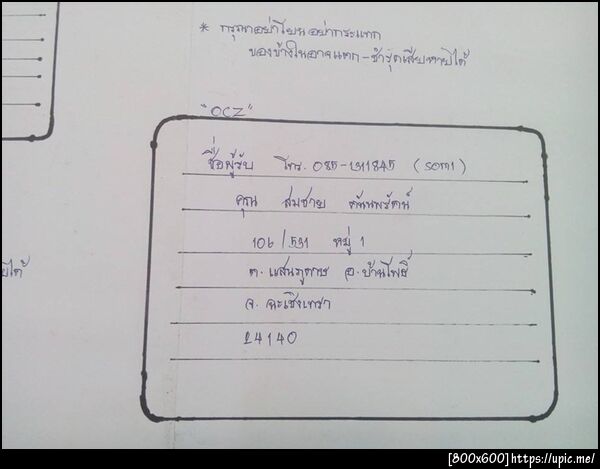 * กรุณาอย่าโยนอย่ากระแทก
ของข้างในอาจแตก-ชำรุดเสียหายได้
"OCZ"
ชื่อผู้รับ โทร. 085-1311845
คุณ สมชาย
106/531 หมู่ 1
ต. แสนภูดาษ อ. บ้านโพธิ์
จ. ฉะเชิงเทรา
24140
ยได้
[800x600]https://upic.me/